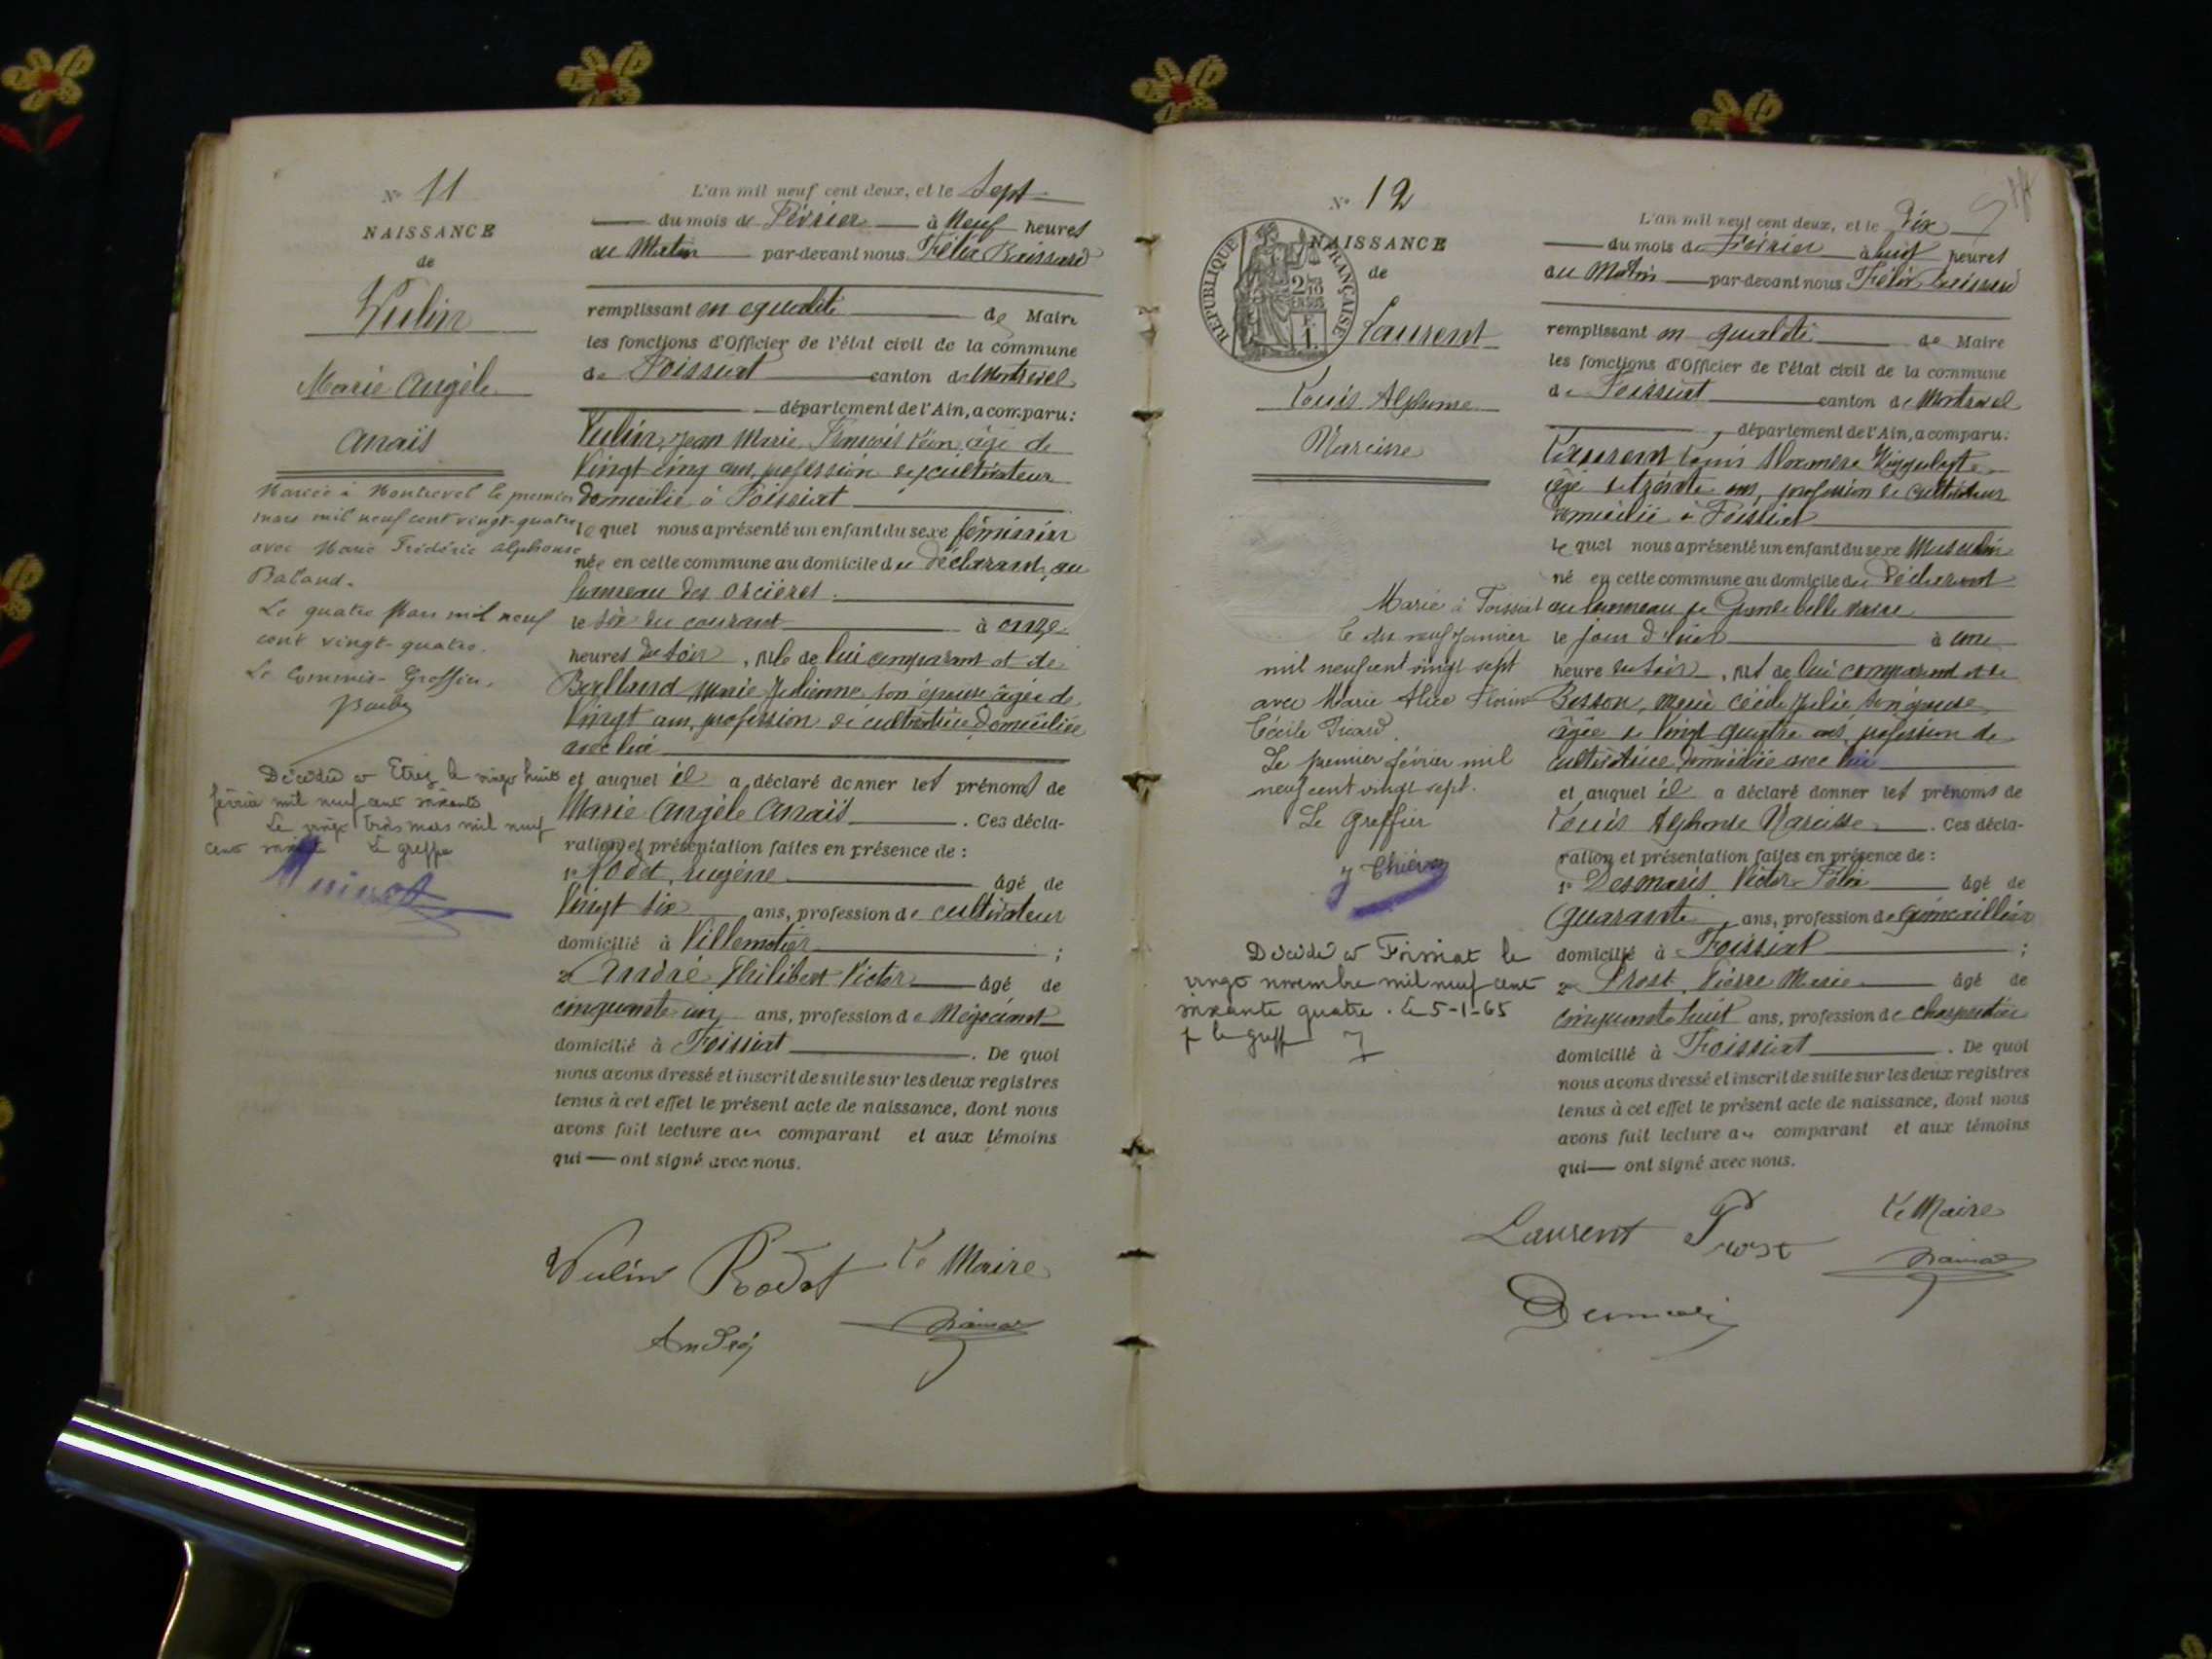 N° 11
NAISSANCE
de
Vulin
Marie Angèle
Anaïs
Mariée à Montrevel le premier
mars mil neuf cent vingt-quatre
avec Marie Frédéric Alphonse
Baland.
Le quatre Mars mil neuf
cent vingt-quatre.
Le Commis-Greffier,
Décédée à Etrez le vingt huit
février mil neuf cent soixante
Le vingt trois mars mil neuf
cent soixante Le greffe
L'an mil neuf cent deux, et le Sept
du mois de Février à Neuf heures
du Matin par-devant nous Félix
remplissant en qualité de Maire
les fonctions d'Officier de l'état civil de la commune
de Foissiat canton de Montrevel
département de l'Ain, a comparu:
Vulin, Jean Marie François Léon âgé de
Vingt cinq ans, profession de cultivateur
domicilié à Foissiat
lequel nous a présenté un enfant du sexe féminin
née en cette commune au domicile du déclarant, au
hameau des Orcières
le six du courant à onze
heures du soir, née de lui comparant et de
Berlland Marie Julienne, son épouse âgée de
Vingt ans, profession de cultivatrice domiciliée
avec lui
et auquel il a déclaré donner les prénoms de
Marie Angèle Anaïs. Ces décla-
ration et présentation faites en présence de:
1° Rodet, Eugène âgé de
Vingt six ans, profession de cultivateur
domicilié à Villemotier;
2° André Philibert Victor âgé de
cinquante un ans, profession de Négociant
domicilié à Foissiat. De quoi
nous avons dressé et inscrit de suite sur les deux registres
tenus à cet effet le présent acte de naissance, dont nous
avons fait lecture au comparant et aux témoins
qui — ont signé avec nous.
Vulin Rodet Le Maire
André
N° 12
NAISSANCE
de
RÉPUBLIQUE FRANÇAISE
Laurent
Louis Alphonse
Narcisse
Marié à Foissiat
le dix neuf Janvier
mil neuf cent vingt sept
avec Marie Alice Florine
Cécile Picard.
Le premier février mil
neuf cent vingt sept.
Le Greffier
Décédé à Foissiat le
vingt novembre mil neuf cent
soixante quatre. Le 5-1-65
p le greff
L'an mil neuf cent deux, et le Dix
du mois de Février à huit heures
du Matin par-devant nous Félix
remplissant en qualité de Maire
les fonctions d'Officier de l'état civil de la commune
de Foissiat canton de Montrevel
département de l'Ain, a comparu:
Laurent Louis
âgé de trente ans, profession de cultivateur
domicilié à Foissiat
lequel nous a présenté un enfant du sexe Masculin
né en cette commune au domicile du déclarant
au hameau de
le jour d'hier à une
heure du soir, né de lui comparant et de
Bosson, Marie Julie son épouse
âgée de Vingt quatre ans, profession de
cultivatrice domiciliée avec lui
et auquel il a déclaré donner les prénoms de
Louis Alphonse Narcisse. Ces décla-
ration et présentation faites en présence de:
1° Desmaris Victor Félix âgé de
Quarante ans, profession de quincaillier
domicilié à Foissiat;
2° Prost, Pierre Marie âgé de
cinquante huit ans, profession de charpentier
domicilié à Foissiat. De quoi
nous avons dressé et inscrit de suite sur les deux registres
tenus à cet effet le présent acte de naissance, dont nous
avons fait lecture au comparant et aux témoins
qui — ont signé avec nous.
Laurent Prost Le Maire